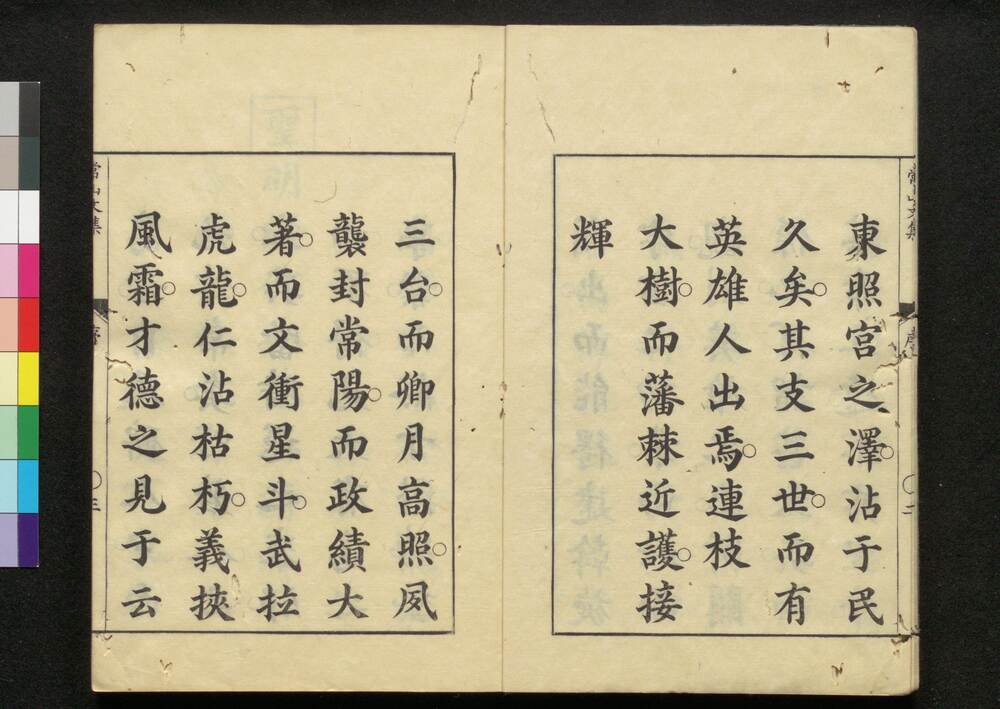 東照宮之澤沾于民
久矣其支三世而有
英雄人出焉連枝
大樹而藩棘近護接
輝
三台而卿月高照夙
襲封常陽而政績大
著而文衝星斗武拉
虎龍仁沾枯朽義挾
風霜才德之見于云